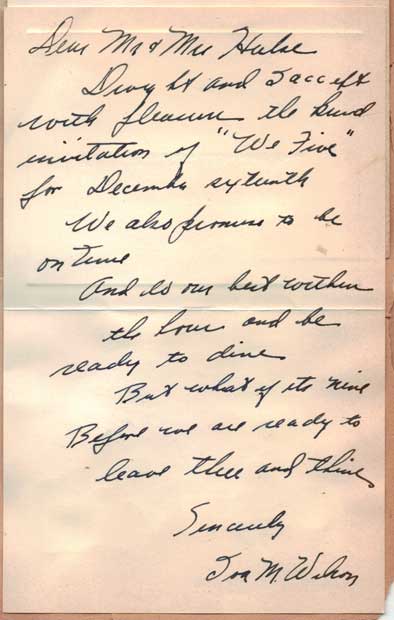 Dear Mr & Mrs Hulse
Dwight and I accept
with pleasure the kind
invitation of "We Five"
for December sixteenth
We also promise to be
on time
And do our best within
the hour and be
ready to dine
But what if its nine
Before we are ready to
leave thee and thine
Sincerely
Iva M. Wilson